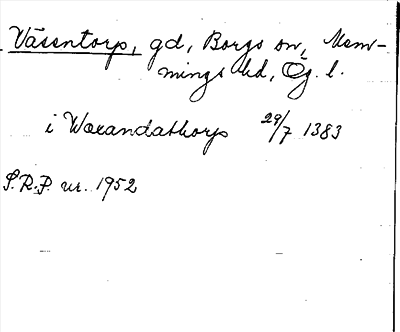 Väsentorp, gd, Borgs sn, Mem-
mings hd, Ög. l.
i Wærandathorp 29/7 1383
S.R.P. nr. 1952